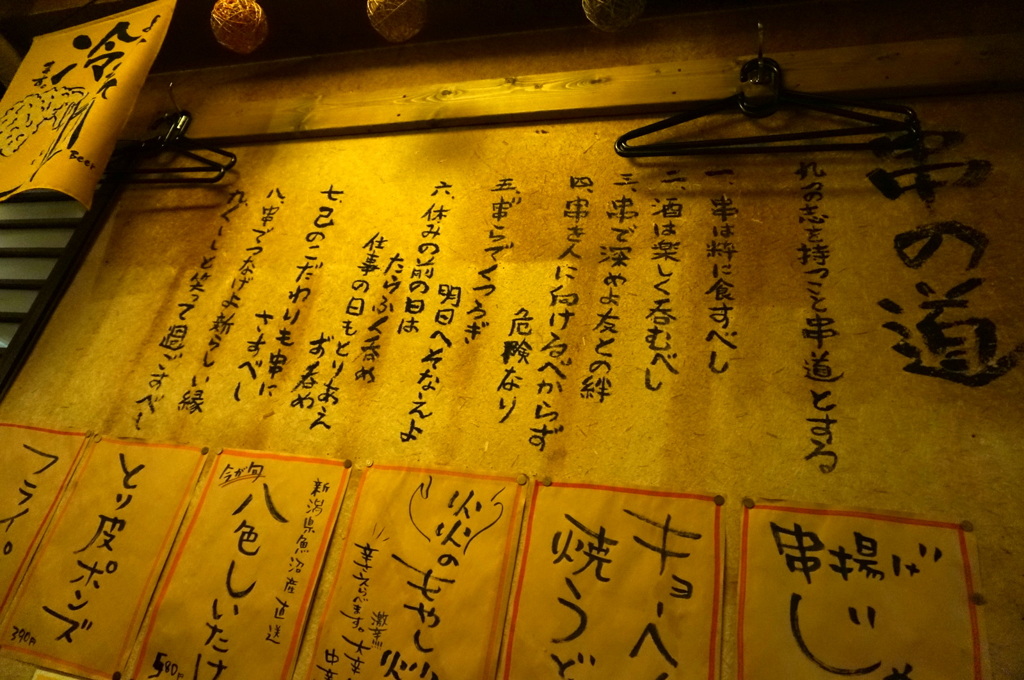 串の道
れの志を持つこと串道とする
一、串は粋に食すべし
二、酒は楽しく呑むべし
三、串で深めよ友との絆
四、串を人に向けるべからず
危険なり
五、ぎらでくつろぎ
明日へそなえよ
六、休みの前の日は
たらふく呑め
仕事の日もとりあえ
ず呑め
七、己のこだわりも串に
さすべし
八、串でつなげよ新らしい縁
九、くししと笑って過ごすべし
冷
Beer
串揚げ
じ
キョーヘ
焼うど
炎の
もやし炒
辛さえらべます。
激辛
大辛
中辛
新潟県魚沼産直送
今が旬
八色しいたけ
580
とり皮ポンズ
390円
フライ。